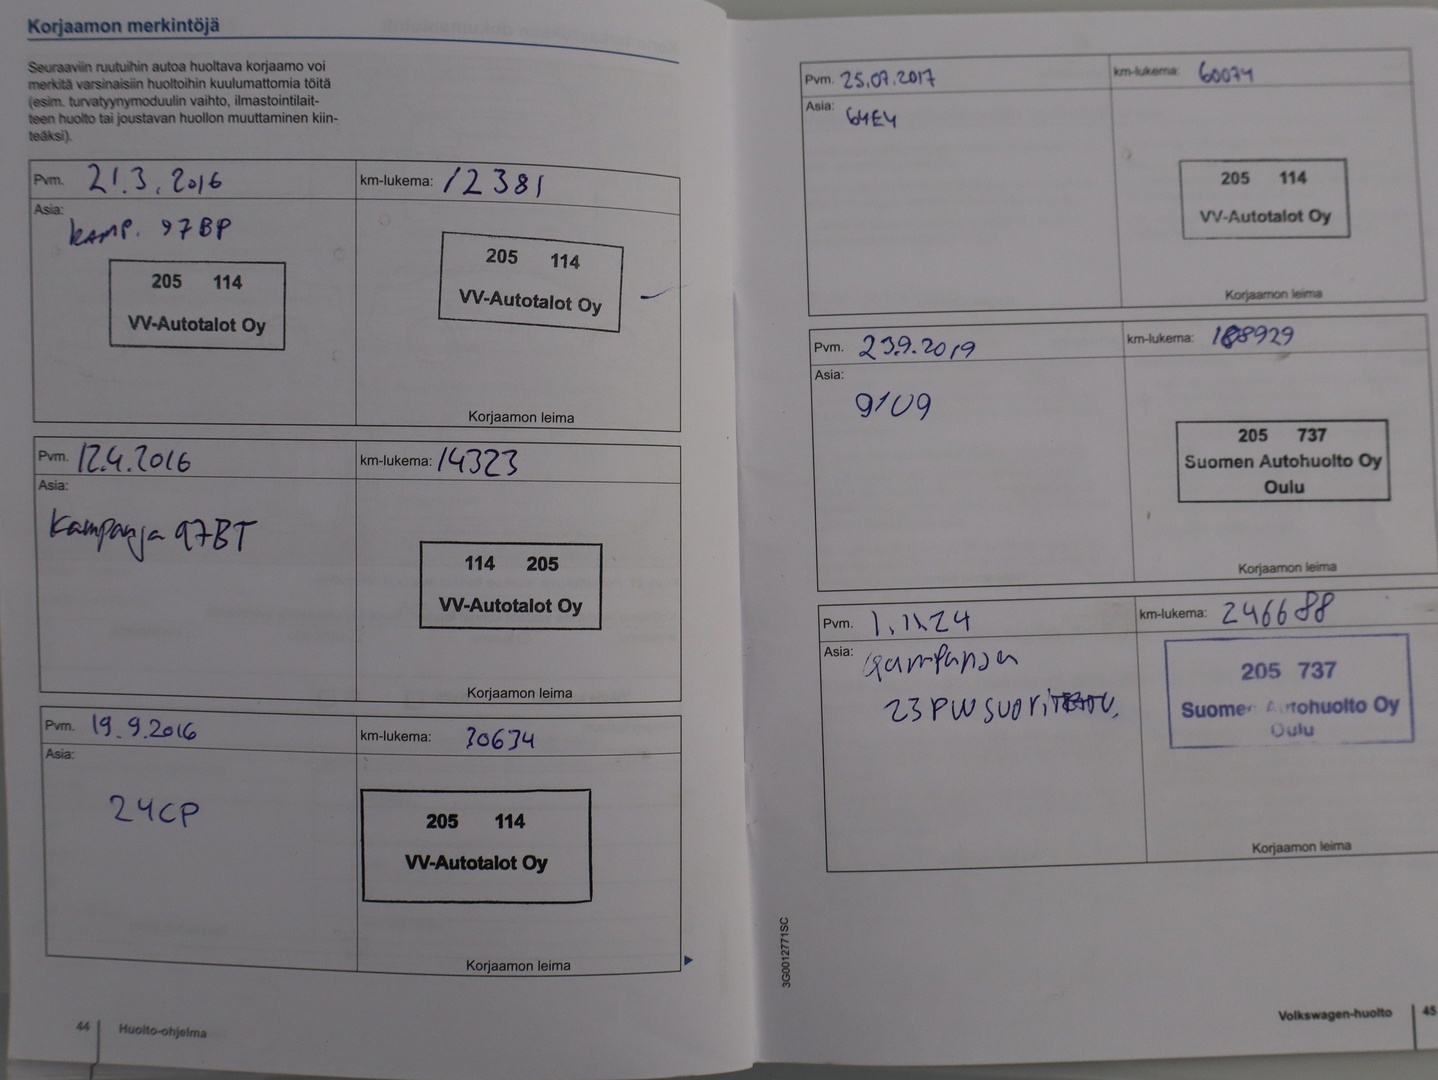 Korjaamon merkintöjä
Seuraaviin ruutuihin autoa huoltava korjaamo voi
merkitä varsinaisiin huoltoihin kuulumattomia töitä
(esim. turvatyynymoduulin vaihto, ilmastointilait-
teen huolto tai joustavan huollon muuttaminen kiin-
teäksi).
Pvm. 21.3.2016
km-lukema: 12381
Asia:
kamp. 97BP
205 114
VV-Autotalot Oy
205 114
VV-Autotalot Oy
Korjaamon leima
Pvm. 12.4.2016
km-lukema: 14323
Asia:
Kampanja 97BT
114 205
VV-Autotalot Oy
Korjaamon leima
Pvm. 19.9.2016
km-lukema: 30634
Asia:
24CP
205 114
VV-Autotalot Oy
Korjaamon leima
44 Huolto-ohjelma
Pvm. 25.07.2017
km-lukema: 60074
Asia:
64E4
205 114
VV-Autotalot Oy
Korjaamon leima
Pvm. 23.9.2019
km-lukema: 188929
Asia:
91U9
205 737
Suomen Autohuolto Oy
Oulu
Korjaamon leima
Pvm. 1.11.24
km-lukema: 246688
Asia:
Kampanja
23PW suoritettu.
205 737
Suomen Autohuolto Oy
Oulu
Korjaamon leima
3G0012771SC
Volkswagen-huolto 45